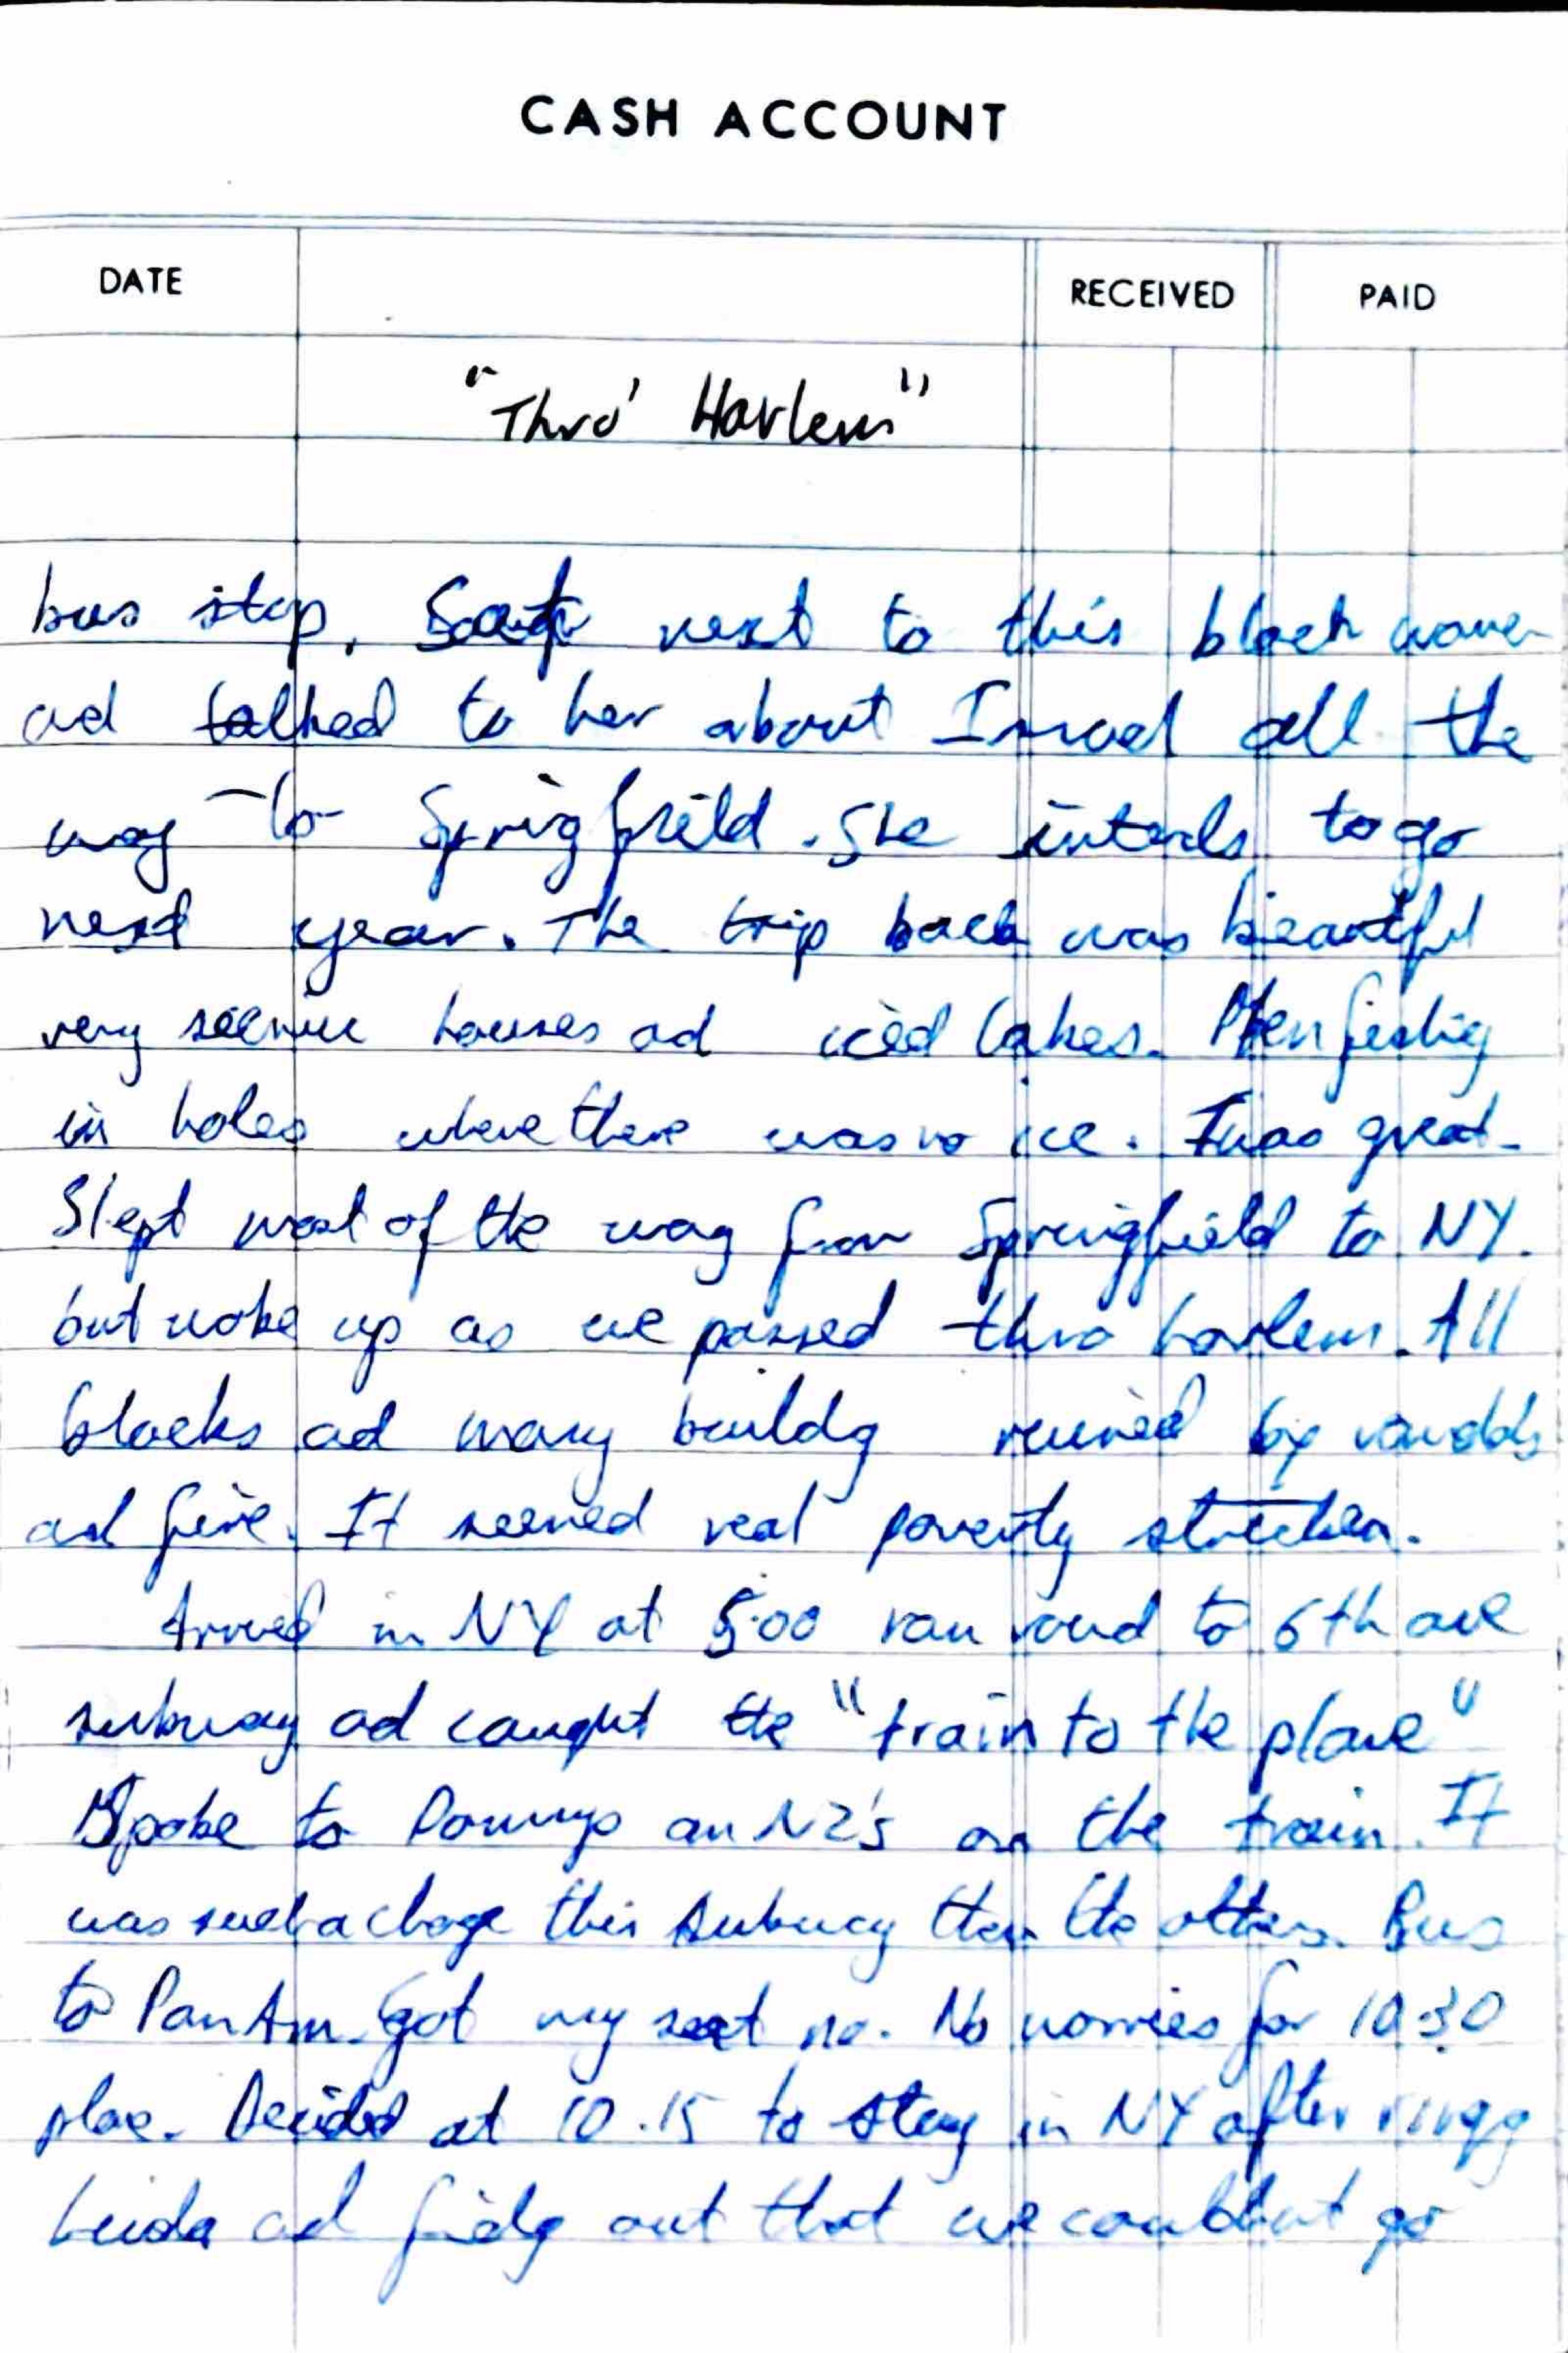 CASH ACCOUNT
DATE RECEIVED PAID
"Thro' Harlem"
bus stop. Sat next to this black woman
ad talked to her about Israel all the
way to Springfield. She intends to go
next year. The trip back was beautiful
very scenic houses ad iced lakes. Men fishing
in holes where there was no ice. It was great.
Slept most of the way from Springfield to NY.
but woke up as we passed thro harlem. All
blacks ad many buildg ruined by vandals
ad fire. It seemed real poverty stricken.
Arrived in NY at 5:00 ran round to 6th ave
subway ad caught the "train to the plane"
Spoke to an NZ's on the train. It
was such a change this subway then the others. Bus
to PanAm. Got my seat no. No worries for 10.30
plae. Decided at 10.15 to stay in NY after ringg
Linda ad fidg out that we couldnt go